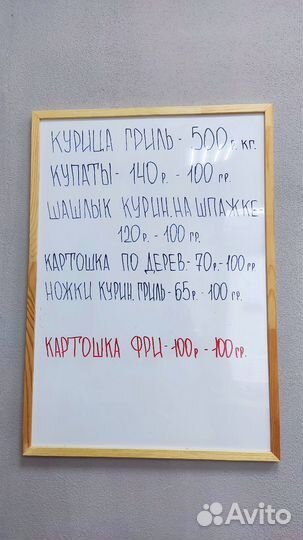 КУРИЦА ГРИЛЬ - 500р. кг.
КУПАТЫ - 140р. - 100 гр.
ШАШЛЫК КУРИН. НА ШПАЖКЕ
120р. - 100 гр.
КАРТОШКА ПО ДЕРЕВ. - 70р. - 100 гр.
НОЖКИ КУРИН. ГРИЛЬ - 65р. - 100 гр.
КАРТОШКА ФРИ - 100р - 100 гр.
Avito